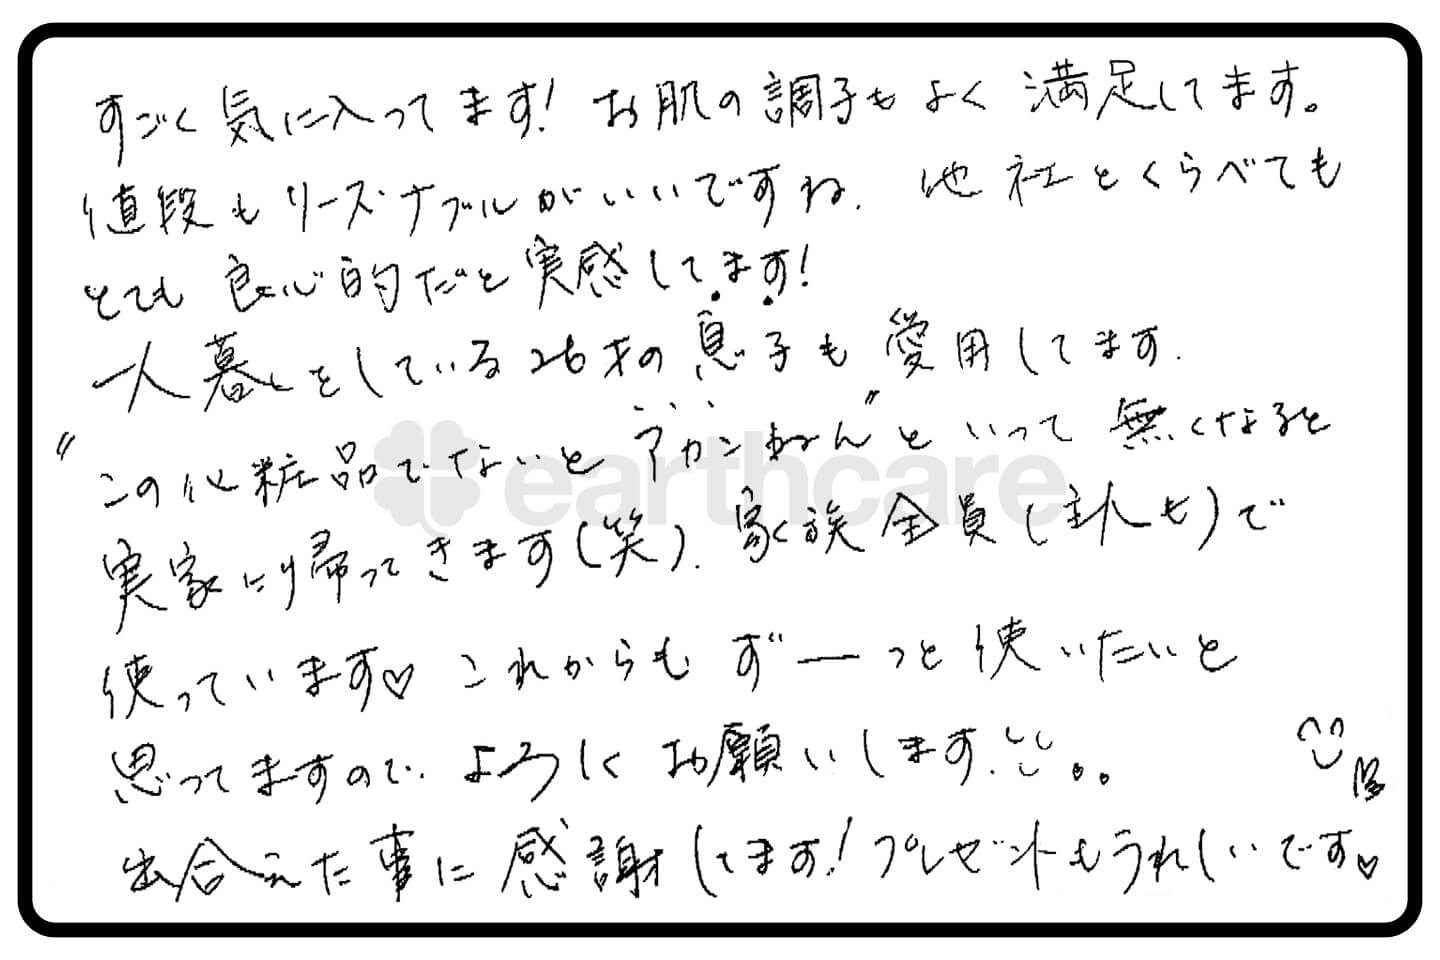 すごく気に入ってます! お肌の調子もよく 満足してます。
値段もリーズナブルがいいですね. 他社とくらべても
とても 良心的だと実感してます!
一人暮しをしている26才の息子も 愛用してます.
"この化粧品でないと アカンねん"といって 無くなると
実家に帰ってきます(笑). 家族全員(主人も)で
使っています♡ これからも ずーっと 使いたいと
思ってますので. よろしく お願いします.
出合えた事に感謝してます! プレゼントもうれしいです♡
earthcare